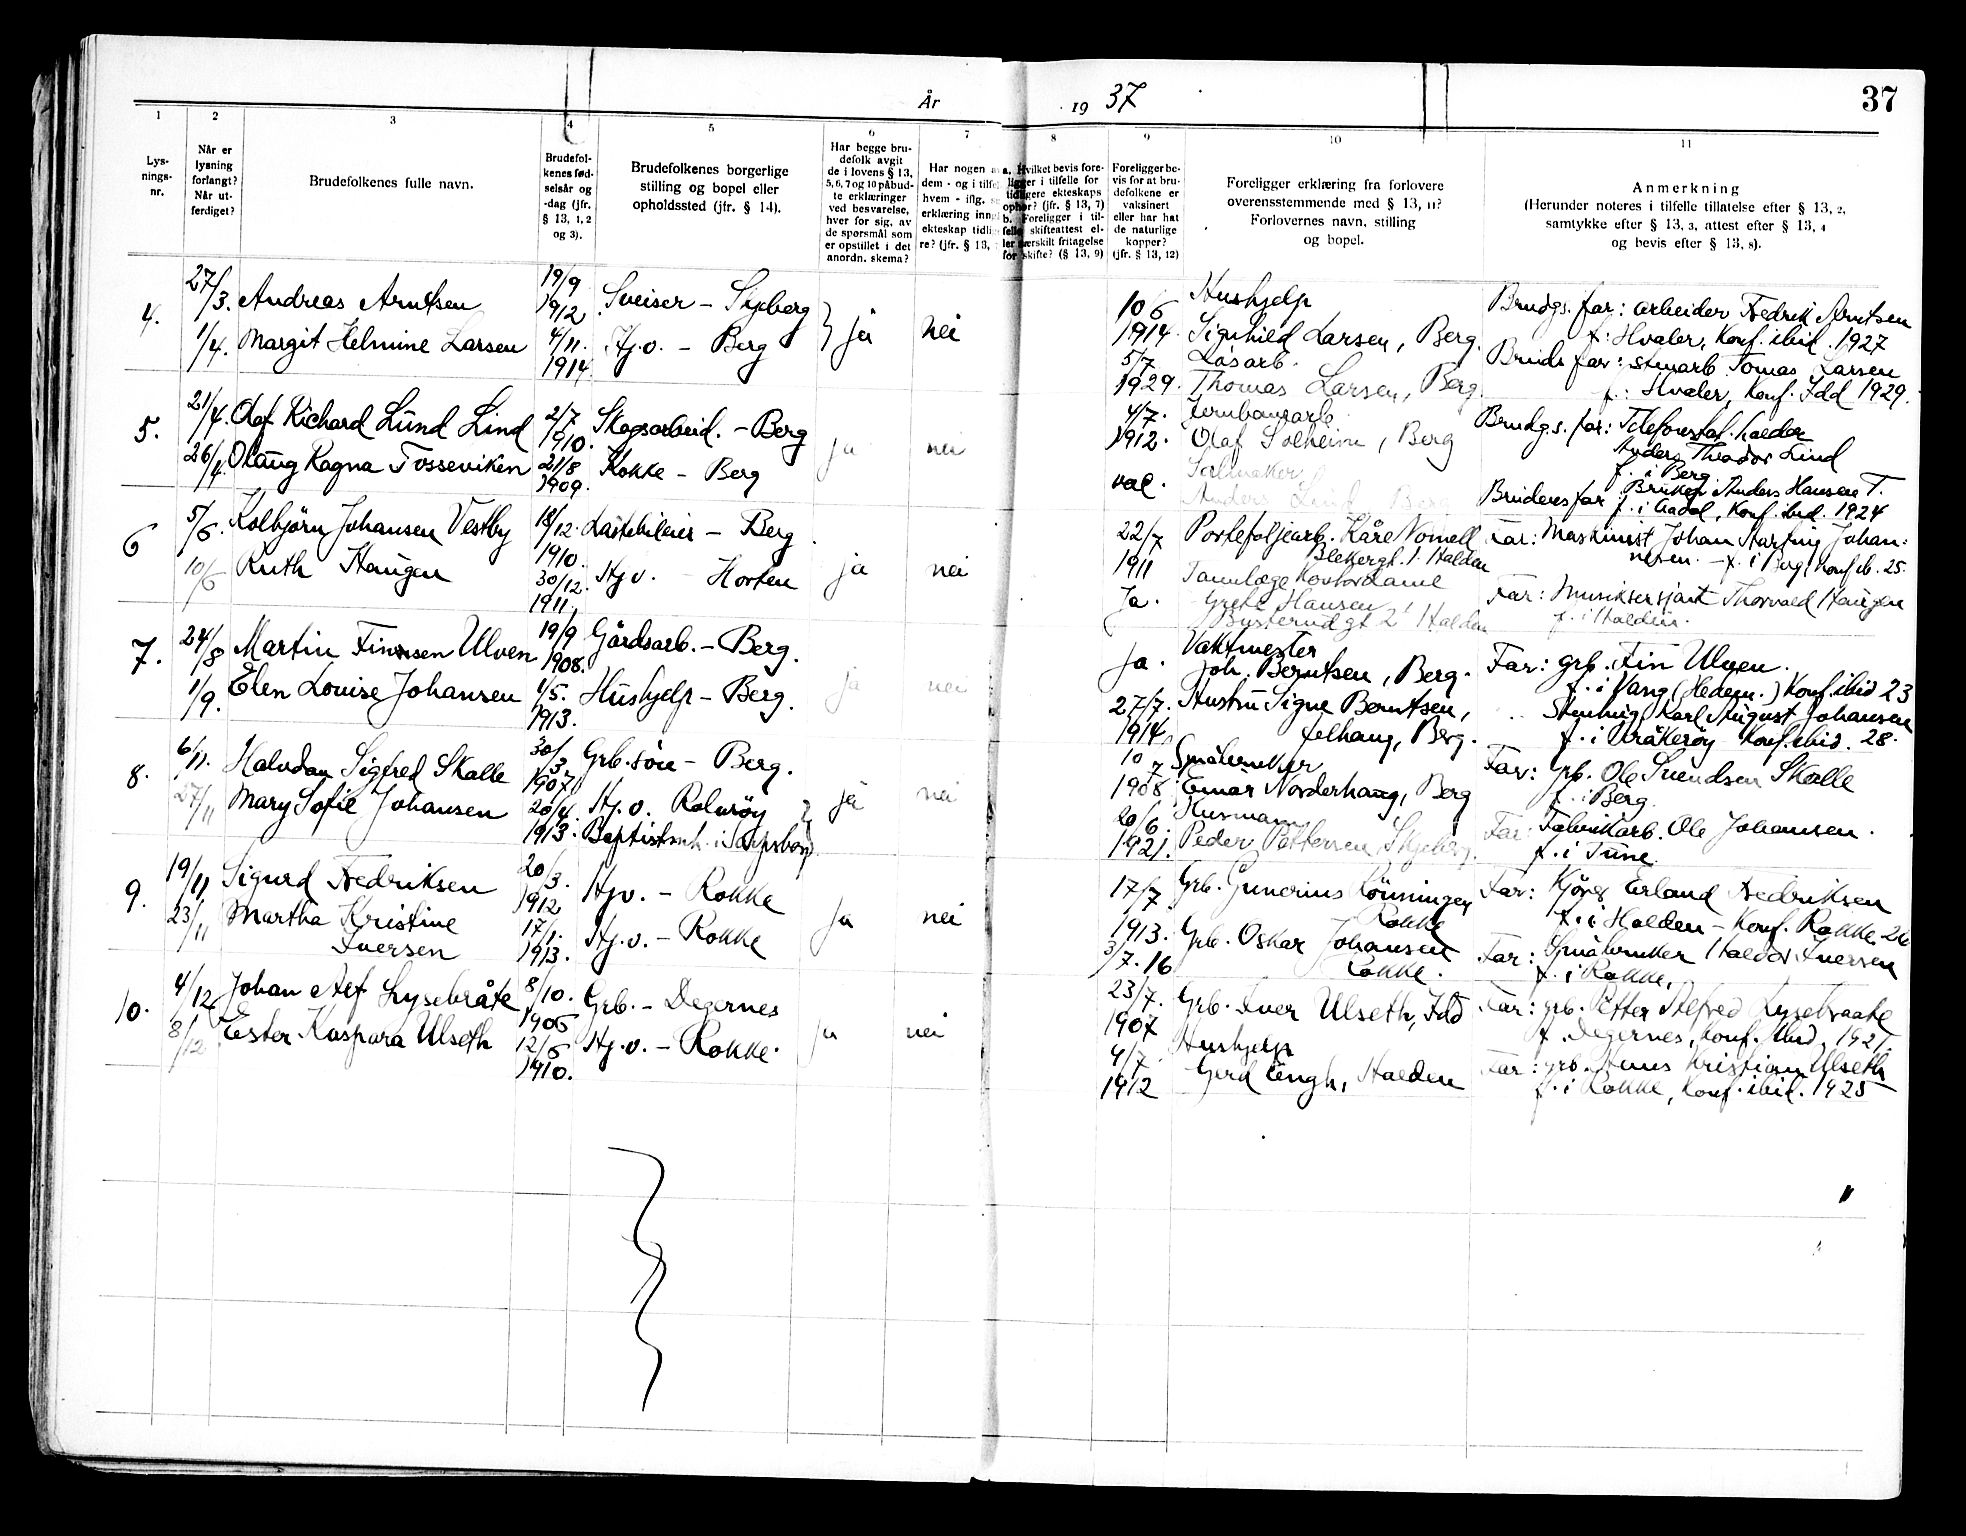 År 19 37
37
1 2 3 4 5 6 7 8 9 10 11
Lys-
nings-
nr.
Når er
lysning
forlangt?
Når ut-
ferdiget?
Brudefolkenes fulle navn.
Brudefol-
kenes fød-
selsår og
-dag (jfr.
§ 13, 1, 2
og 3).
Brudefolkenes borgerlige
stilling og bopel eller
opholdssted (jfr. § 14).
Har begge bru-
defolk avgit
de i lovens § 13,
5, 6, 7 og 10 påbud-
te erklæringer
ved besvarelse,
hver for sig, av
de spørsmål som
er opstillet i det
anordn. skema?
Har nogen a
dem - og i tilfel
hvem - iflg.
erklæring inng
ekteskap tidli
re? (jfr. § 13,
a. Hvilket bevis fore-
ligger i tilfelle for
tidligere ekteskaps
ophør? (jfr. § 13, 7)
b. Foreligger i til-
felle skifteattest el-
ler særskilt fritagelse
for skifte? (§ 13, 9)
Foreligger be-
vis for at bru-
defolkene er
vaksinert
eller har hat
de naturlige
kopper?
(jfr. § 13, 12)
Foreligger erklæring fra forlovere
overensstemmende med § 13, 11?
Forlovernes navn, stilling
og bopel.
Anmerkning
(Herunder noteres i tilfelle tillatelse efter § 13, 2,
samtykke efter § 13, 3, attest efter § 13, 4
og bevis efter § 13, 8).
4.
27/3.
1/4.
Andreas Arntsen
Margit Helmine Larsen
19/9
1912
4/11.
1914
Sveiser - Skjeberg
Hj.v. - Berg
ja
nei
10/6
1914.
5/7
1929.
Hushjelp
Signhild Larsen, Berg.
Løsarb.
Thomas Larsen, Berg.
Brudgs. far: arbeider Fredrik Arntsen
f: Hvaler, Konf. ibid. 1927
Bruds far: stenarb. Tomas Larsen
f: Hvaler, Konf. Idd 1929.
5.
21/4.
26/4
Olaf Richard Lund Lind
Olaug Ragna Tosseviken
2/7
1910.
21/8
1909.
Skogsarbeid. - Berg
Kokke - Berg
ja
nei
4/7.
1912.
val.
Jernbanearb.
Olaf Solheim, Berg
Salmaker
Anders Lind, Berg
Brudgs. far: Telefonstaf. halder
Anders Theodor Lind
f. i Berg
Brudens far: Bruker Anders Hansen T.
Konf. ibid. 1924
6
5/6.
10/6
Kolbjörn Johansen Vestby
Ruth Haugen
18/12.
1910.
30/12.
1911.
Lastebileier - Berg
Hj.v. - Horten
ja
nei
22/7
1911
Ja.
Portefoljearb. Kåre Nomell
Blekergt. 1. Halden
Tannlæge Kontordame
Grete Hansen
Busterudgt 2 Halden
Far: Maskinist Johan Johan-
nesen. - f. i Berg, Konf. ib. 25.
Far: Musiksersjant Thorvald Haugen
f. i Halden.
7.
24/8
1/9.
Martin Finnsen Ulven
Elen Louise Johansen
19/9
1908.
1/5.
1913.
Gårdsarb. - Berg.
Hushjelp - Berg.
ja
nei
ja.
27/7.
1914
Vaktmester
Joh. Berntsen, Berg.
Hustru Signe Berntsen,
Felhaug, Berg.
Far: grb. Fin Ulven.
f. i Vang (Hedem.) Konf. ibid 23
" Stenhug. Karl August Johansen
f. i Kråkerøy Konf. ibid. 28.
8.
6/11.
27/11
Halvdan Sigfred Skolle
Mary Sofie Johansen
30/3
1907
20/4.
1913.
Grb. søn - Berg.
Hj.v. Rolvsøy
Baptistmh. i Sarpsborg
ja
nei
10/7
1908
26/6.
1921.
Småbruker
Einar Norderhaug, Berg
Husmann
Peder Pettersen, Skjeberg.
Far: Grb. Ole Svendsen Skolle
f. i Berg.
Far: Fabrikkarb. Ole Johansen.
f. i Tune.
9.
19/11
23/11
Sigurd Fredriksen
Martha Kristine
Iversen
20/3.
1912
17/1.
1913.
Hjv. - Rokke
Hj.v. - Rokke
Ja
nei
17/7
1913.
3/7. 16
Grb. Gunerius Lönningen
Rokke
Grb. Oskar Johansen
Rokke.
Far: Kjører Erland Fredriksen
f. i Halden - Konf. Rokke 26
Far: Småbruker Halvor Iversen
f. i Rokke.
10.
4/12
8/12
Johan Alf Lysebråte
Ester Kaspara Ulseth
8/10.
1906
12/6
1910.
Grb. - Degernes
Hj.v. - Rokke.
ja
nei
23/7.
1907
4/7.
1912
Grb. Iver Ulseth, Idd
Hushjelp
Gerd Engh, Halden
Far: grb. Petter Alfred Lysebraate
f. Degernes, Konf. ibid. 1921.
Far: grb. Hans Kristian Ulseth
f. i Rokke, Konf. ibid. 1925